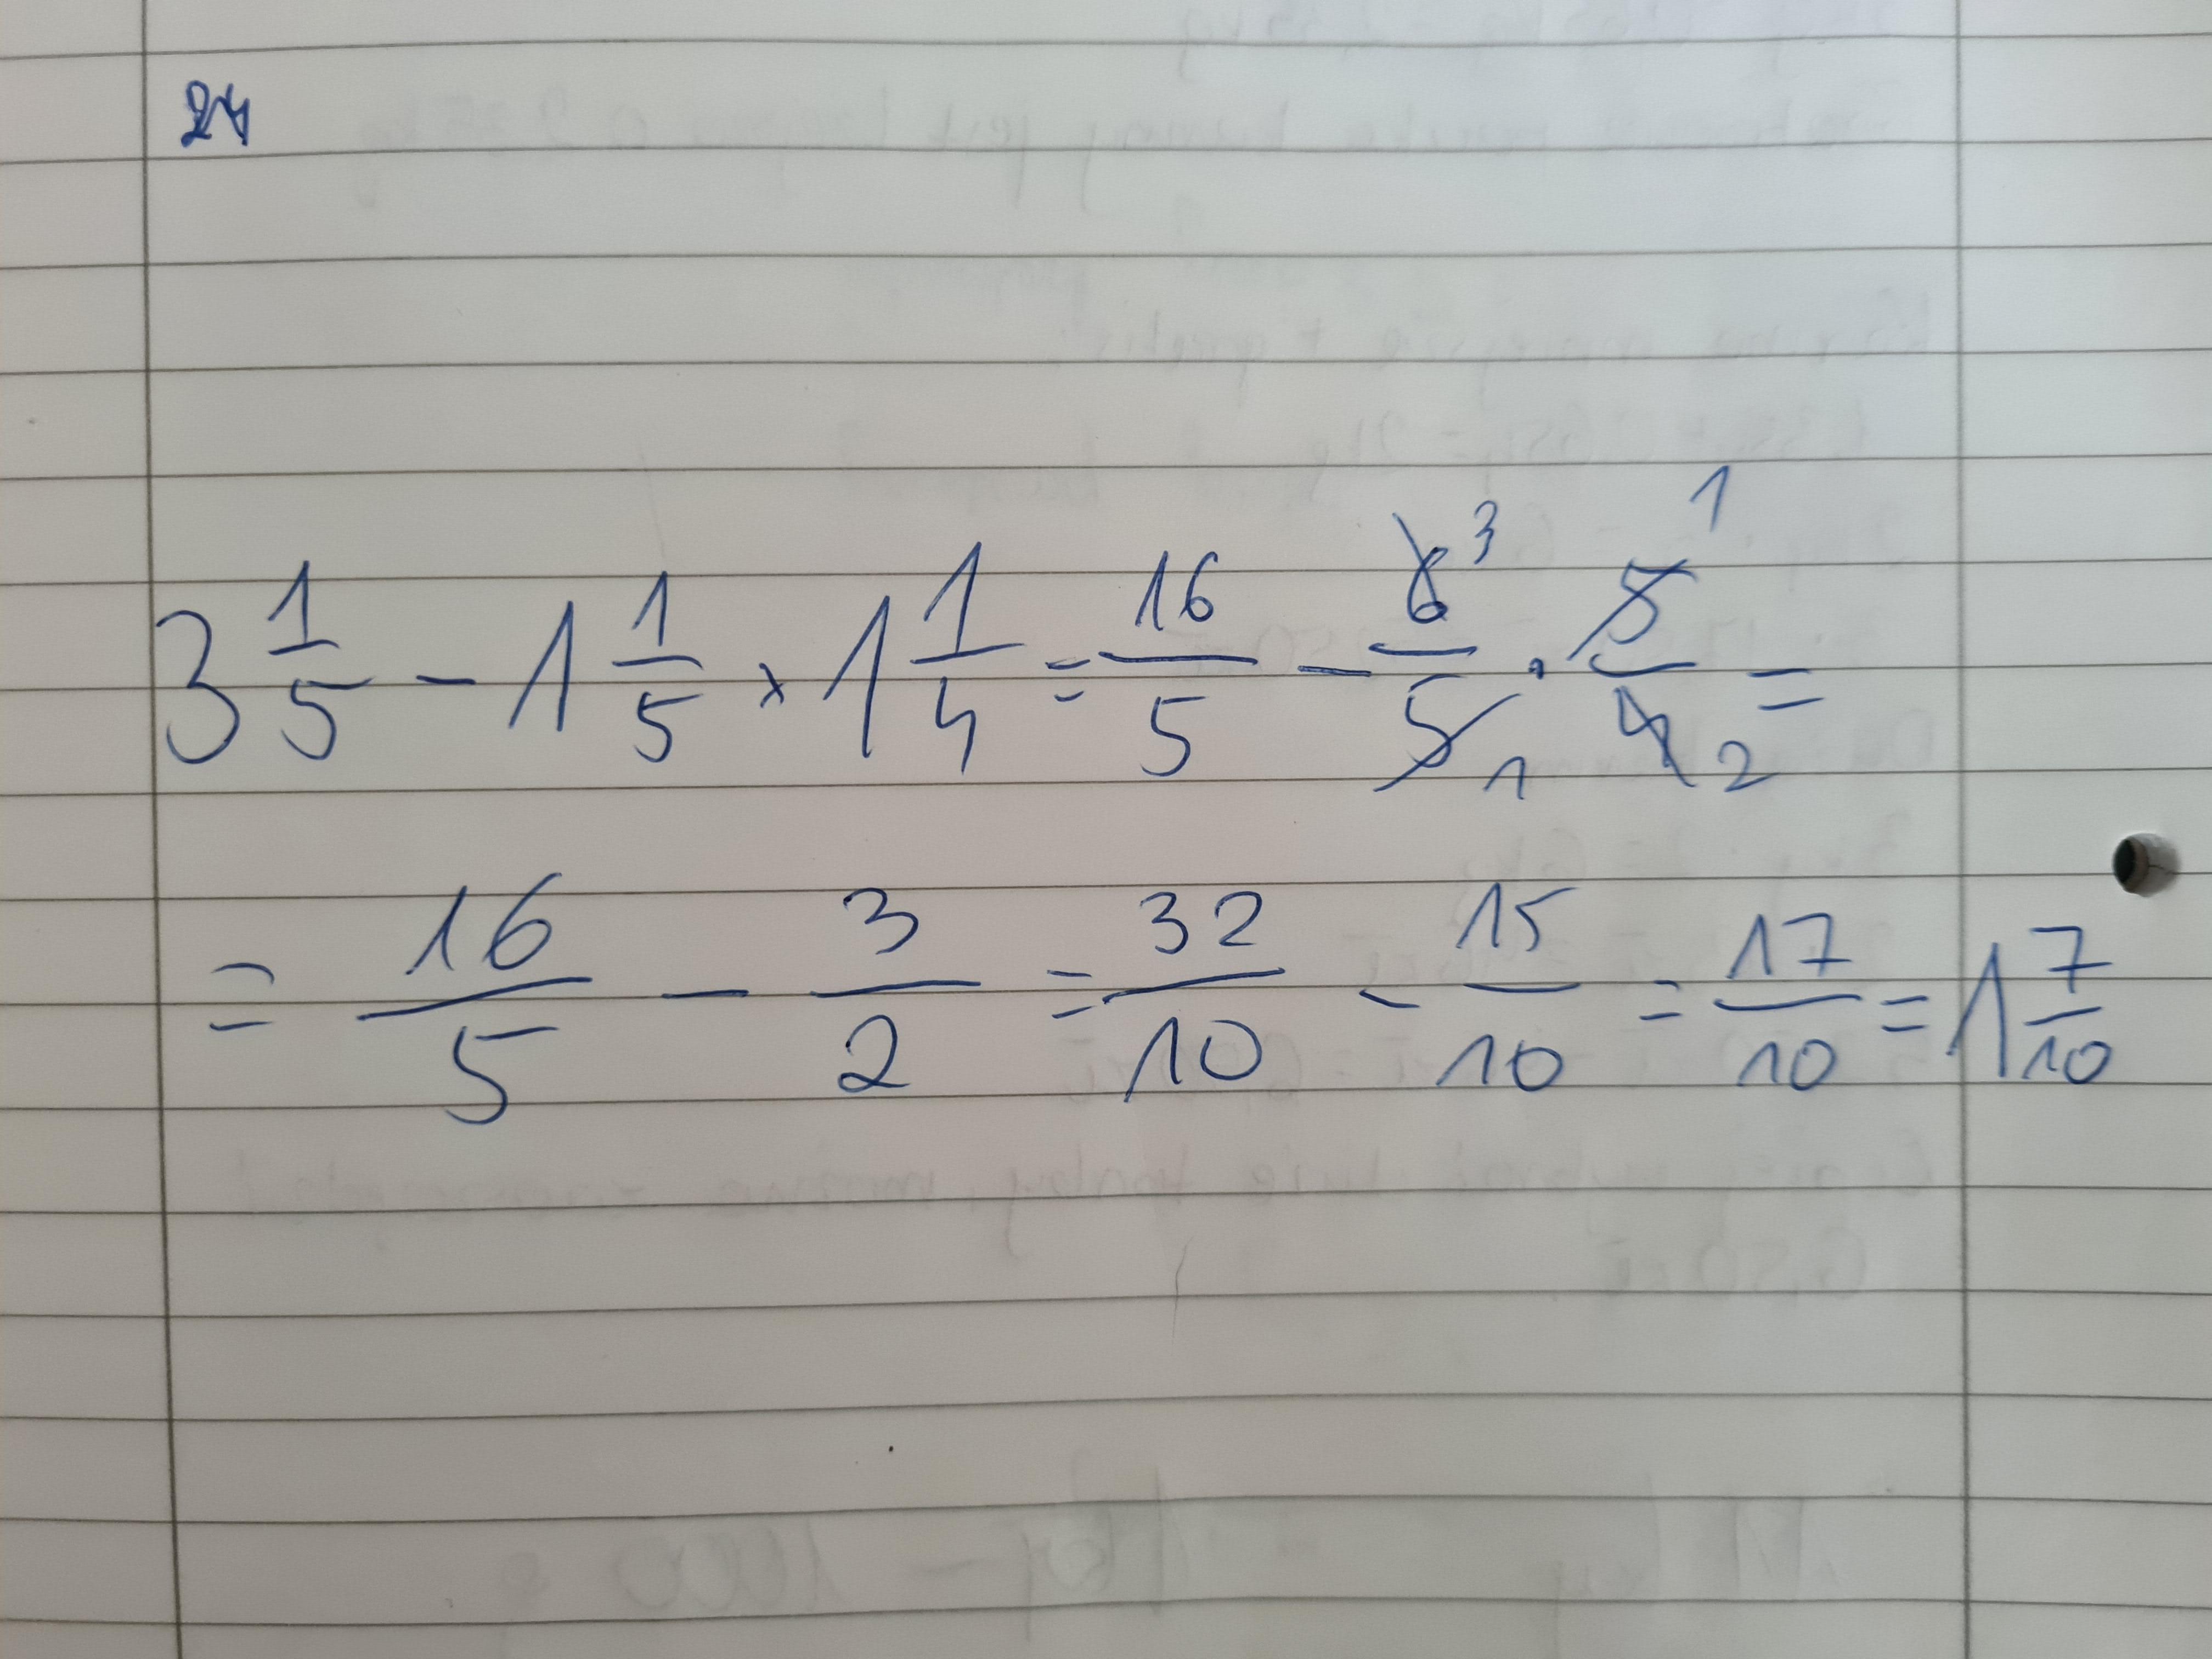 24
3 1/5 - 1 1/5 x 1 1/4 = 16/5 - 6/5 · 5/4 = 3 1 1 2
= 16/5 - 3/2 = 32/10 - 15/10 = 17/10 = 1 7/10